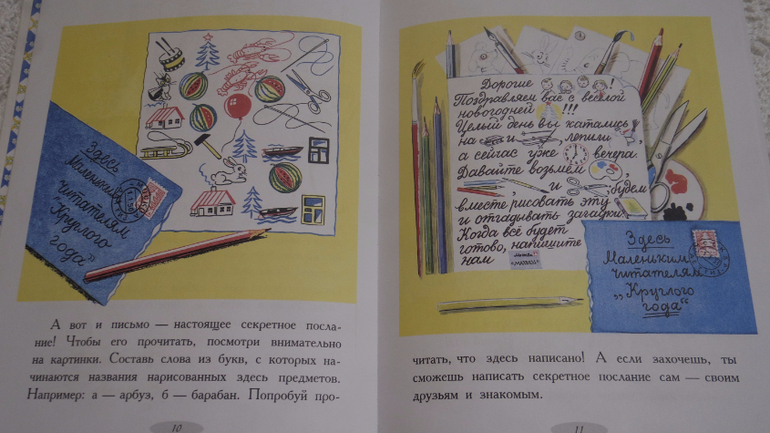 Здесь
Маленьким
Читателям
"Круглого
года"
А вот и письмо — настоящее секретное посла-
ние! Чтобы его прочитать, посмотри внимательно
на картинки. Составь слова из букв, с которых на-
чинаются названия нарисованных здесь предметов.
Например: а — арбуз, б — барабан. Попробуй про-
10
Дорогие !
Поздравляем вас с весёлой
новогодней !!!
Целый день вы катались
на и лепили
а сейчас уже вечера.
Давайте возьмём
, и будем
вместе рисовать эту
и отгадывать загадки.
Когда всё будет
готово, напишите
нам
Здесь
Маленьким
Читателям
„Круглого
года"
читать, что здесь написано! А если захочешь, ты
сможешь написать секретное послание сам — своим
друзьям и знакомым.
11